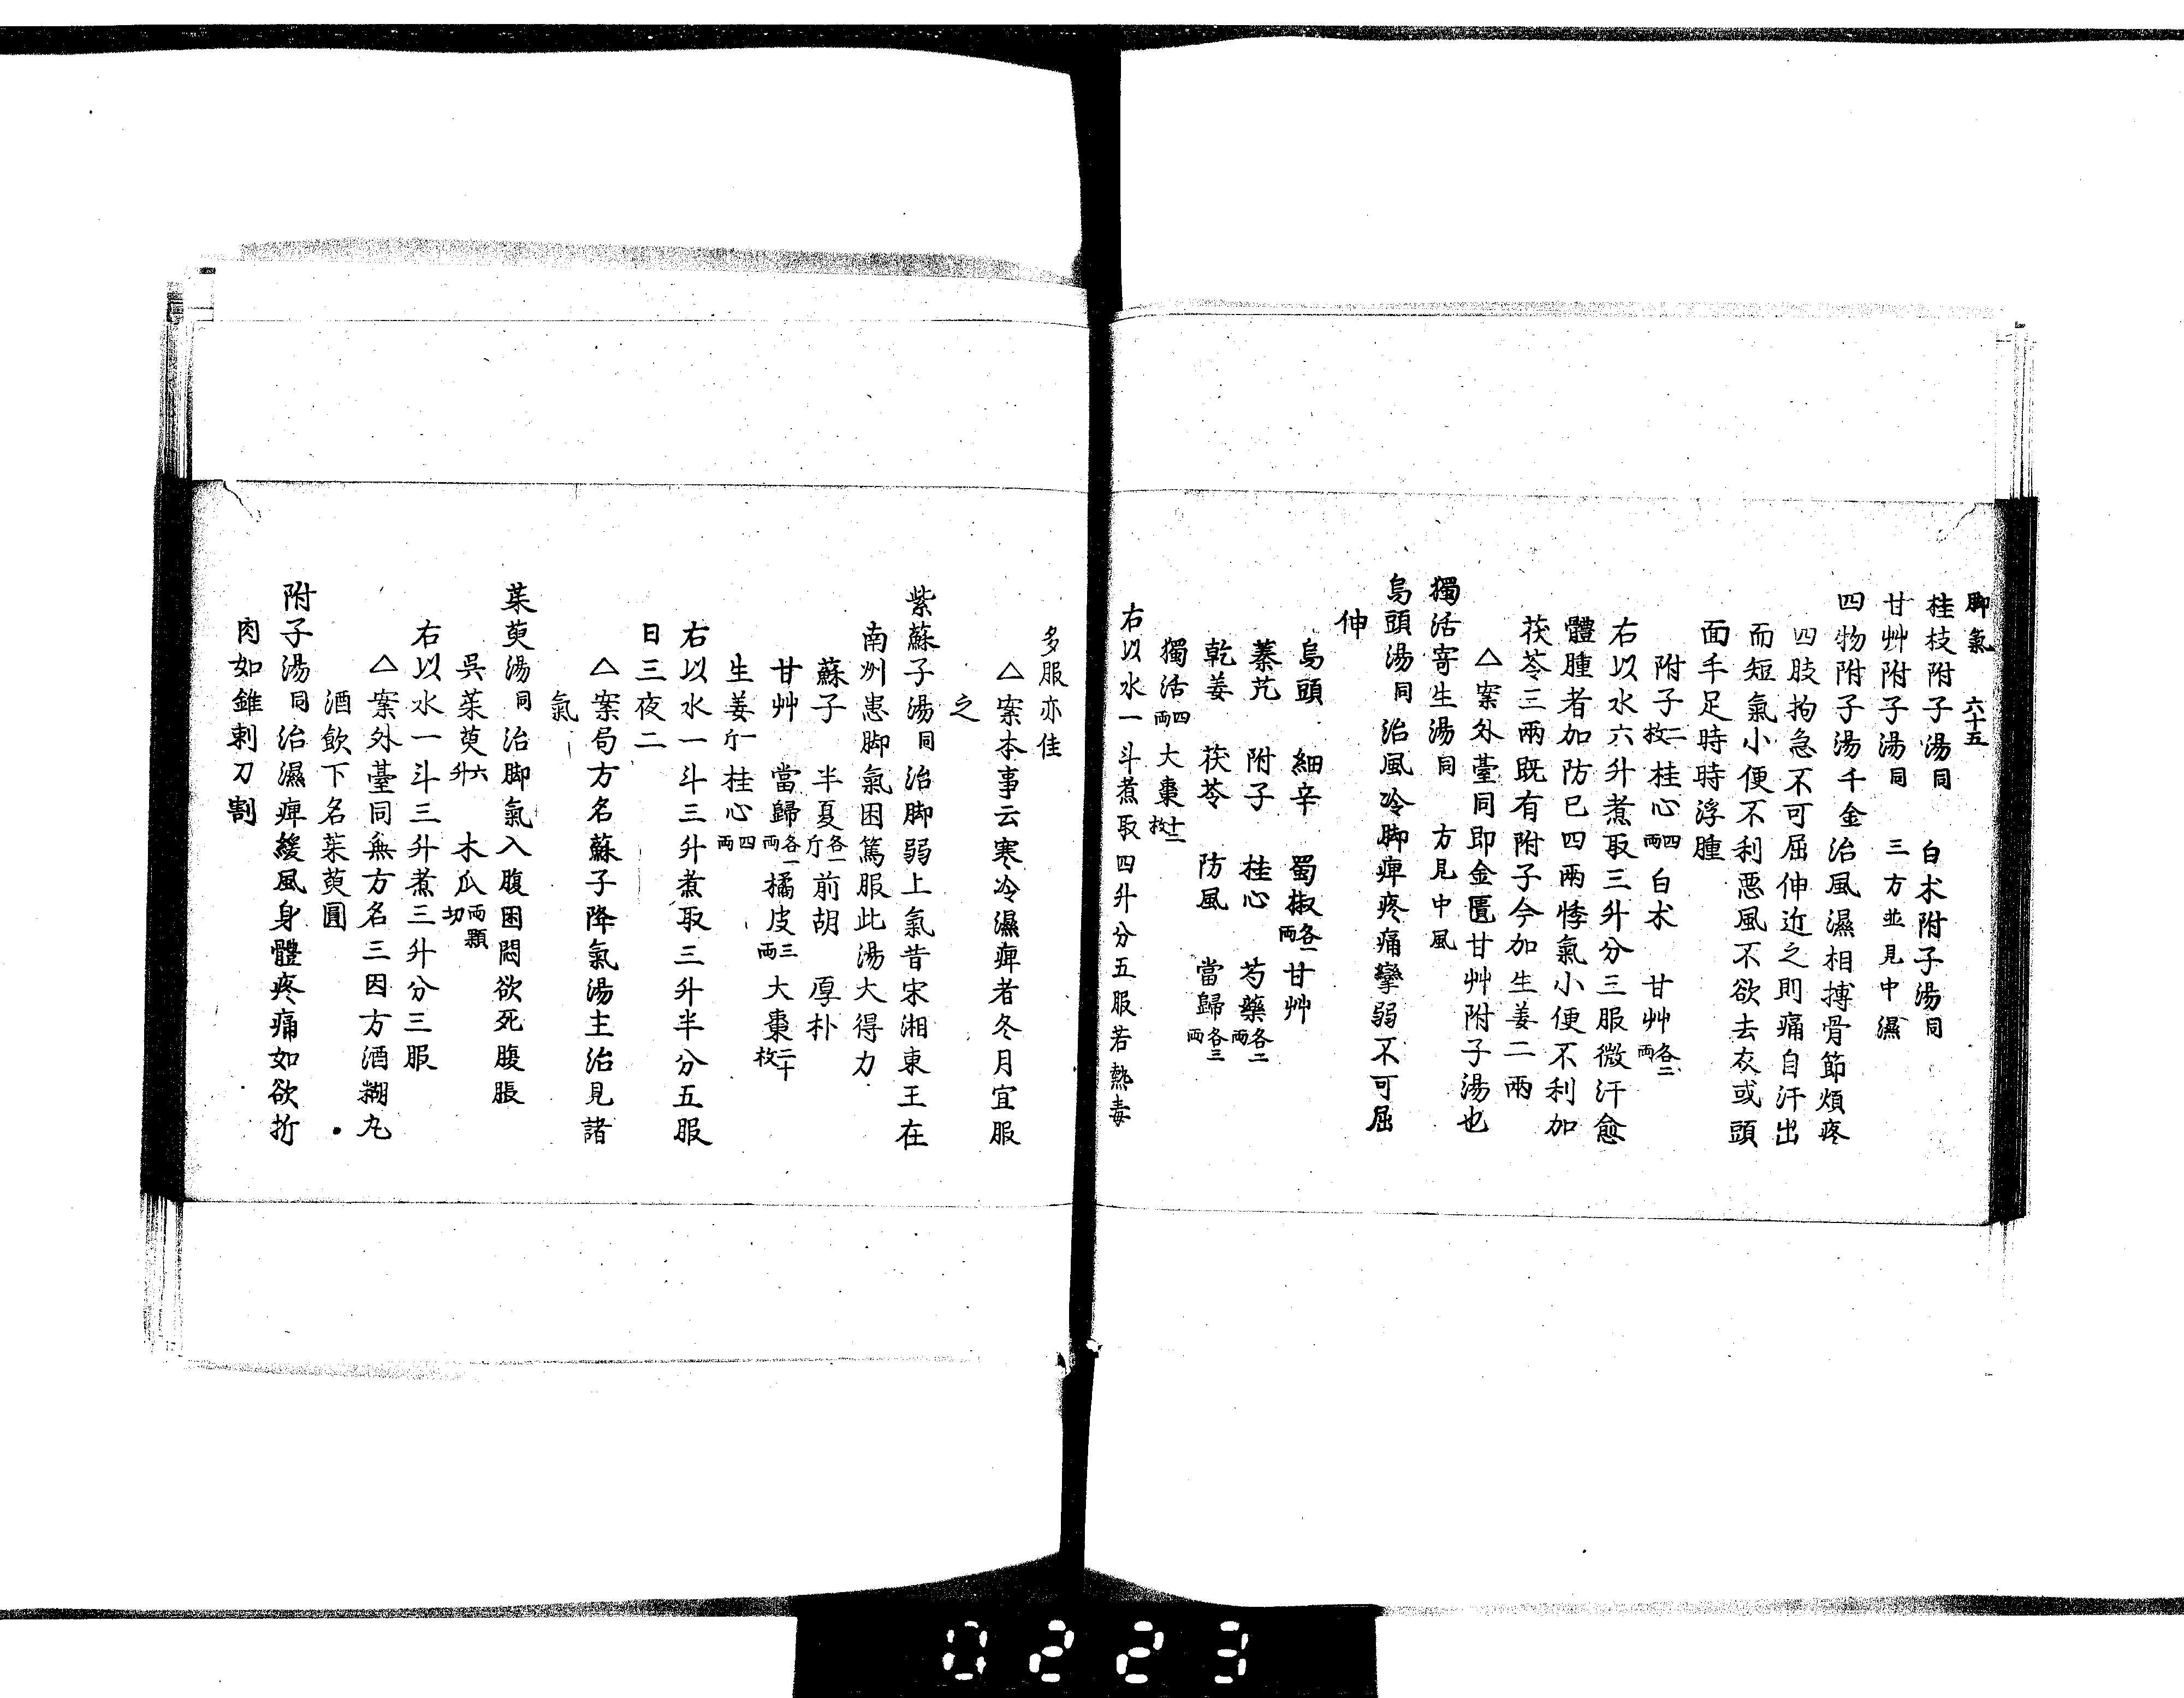 脚氣 六十五
桂枝附子湯同 白朮附子湯同
甘艸附子湯同 三方並見中濕
四物附子湯千金治風濕相搏骨節煩疼
四肢拘急不可屈伸近之則痛自汗出
而短氣小便不利惡風不欲去衣或頭
面手足時時浮腫
附子二枚 桂心四兩 白朮 甘艸各二兩
右以水六升煮取三升分三服微汗愈
體腫者加防已四兩悸氣小便不利加
茯苓三兩既有附子今加生姜二兩
△案外臺同即金匱甘艸附子湯也
獨活寄生湯同 方見中風
烏頭湯同治風冷脚痺疼痛攣弱不可屈
伸
烏頭 細辛 蜀椒各一兩 甘艸
蓁艽 附子 桂心 芍藥各二兩
乾姜 茯苓 防風 當歸各三兩
獨活四兩 大棗十二枚
右以水一斗煮取四升分五服若熱毒
多服亦佳
△案本事云寒冷濕痺者冬月宜服
之
紫蘇子湯同治脚弱上氣昔宋湘東王在
南州患脚氣困篤服此湯大得力
蘇子 半夏各一斤 前胡 厚朴
甘艸 當歸各一兩 橘皮三兩 大棗二十枚
生姜一斤 桂心四兩
右以水一斗三升煮取三升半分五服
日三夜二
△案局方名蘇子降氣湯主治見諸
氣
茱萸湯同治脚氣入腹困悶欲死腹脹
呉茱萸六升 木瓜兩顆切
右以水一斗三升煮三升分三服
△案外臺同無方名三因方酒糊丸
酒飲下名茱萸圓
附子湯同治濕痺緩風身體疼痛如欲折
肉如錐刺刀割
0223